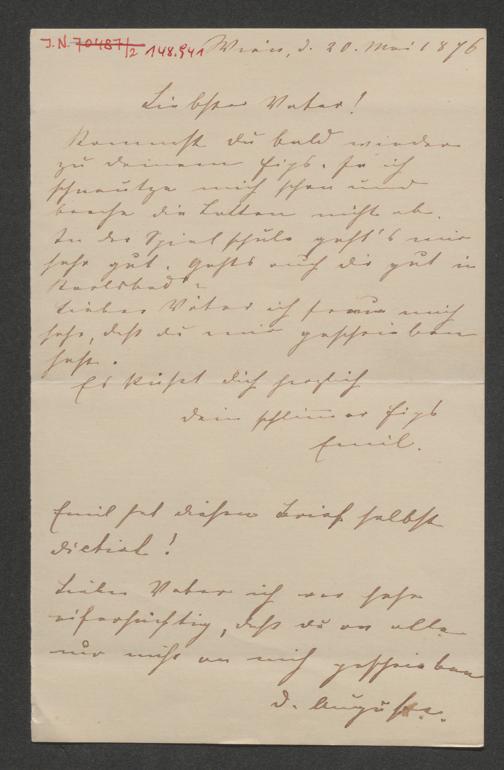 I.N. 70487/2 148.941 Wien, d. 20. Mai 1876
Liebster Vater!
Kommst du bald wieder
zu deinem Fips.
schneutze mich schon und
breche die Latten nicht ab.
In der Spielschule geht's mir
sehr gut. Gehts auch dir gut in
Karlsbad?
Lieber Vater ich freue mich
sehr, daß du mir geschrieben
hast.
Es küsst dich herzlich
dein schlimmer Fips
Emil.
Emil hat diesen Brief selbst
dictirt!
Lieber Vater ich war sehr
eifersüchtig, daß du an alle
nur nicht an mich geschrieben
d. August